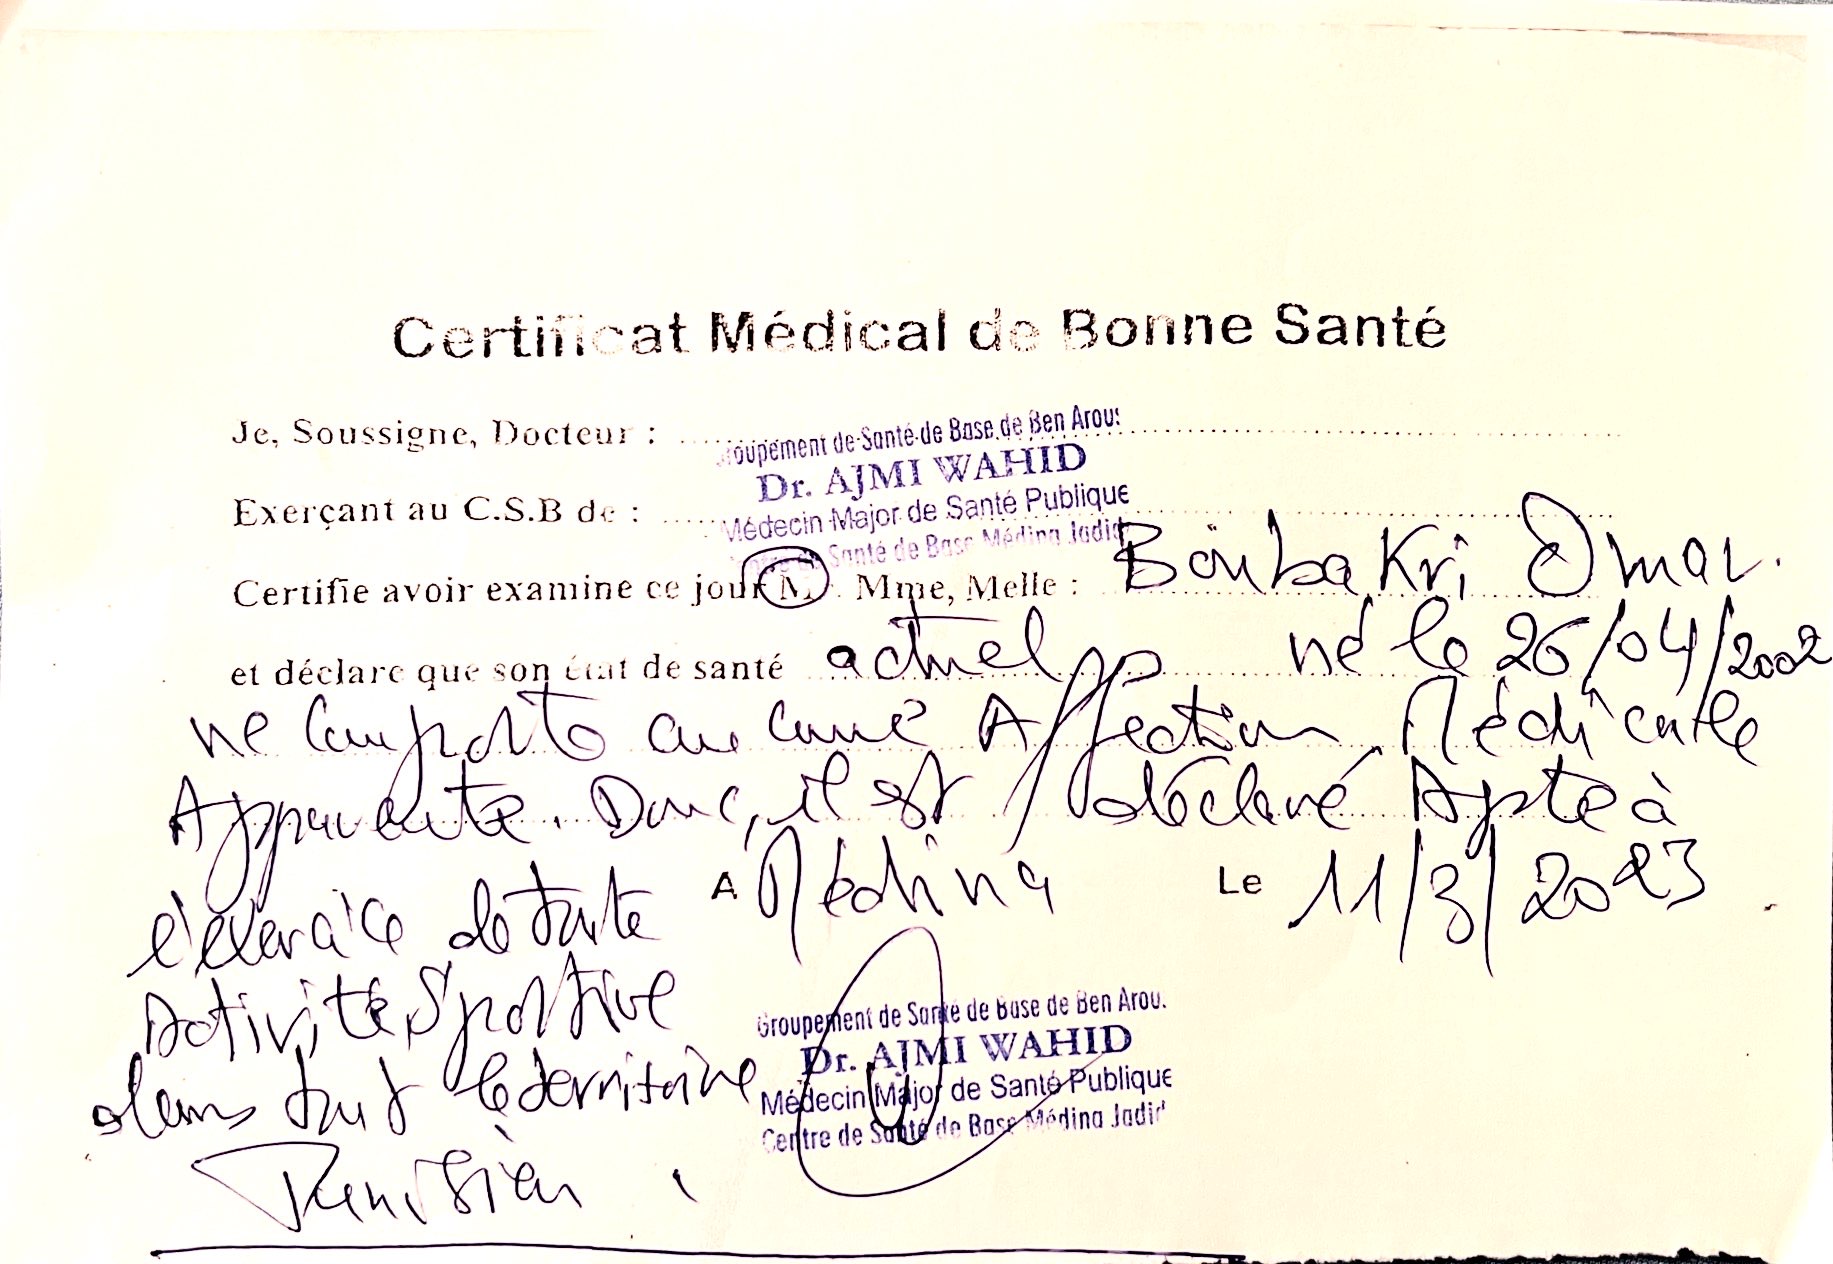 Certificat Médical de Bonne Santé
Je, Soussigne, Docteur :
Groupement de Santé de Base de Ben Arous
Dr. AJMI WAHID
Exerçant au C.S.B de :
Médecin Major de Santé Publique
Centre de Santé de Base Médina Jadid
Certifie avoir examine ce jour M. Mme, Melle : Boubakri Omar.
et déclare que son état de santé actuel né le 26/04/2002
ne comporte aucune Affection Médicale
Apparente. Donc, il est déclaré Apte à
A Médina Le 11/3/2023
l'exercice de toute
Activité Sportive
dans tout le territoire
Tunisien.
Groupement de Santé de Base de Ben Arous
Dr. AJMI WAHID
Médecin Major de Santé Publique
Centre de Santé de Base Médina Jadid